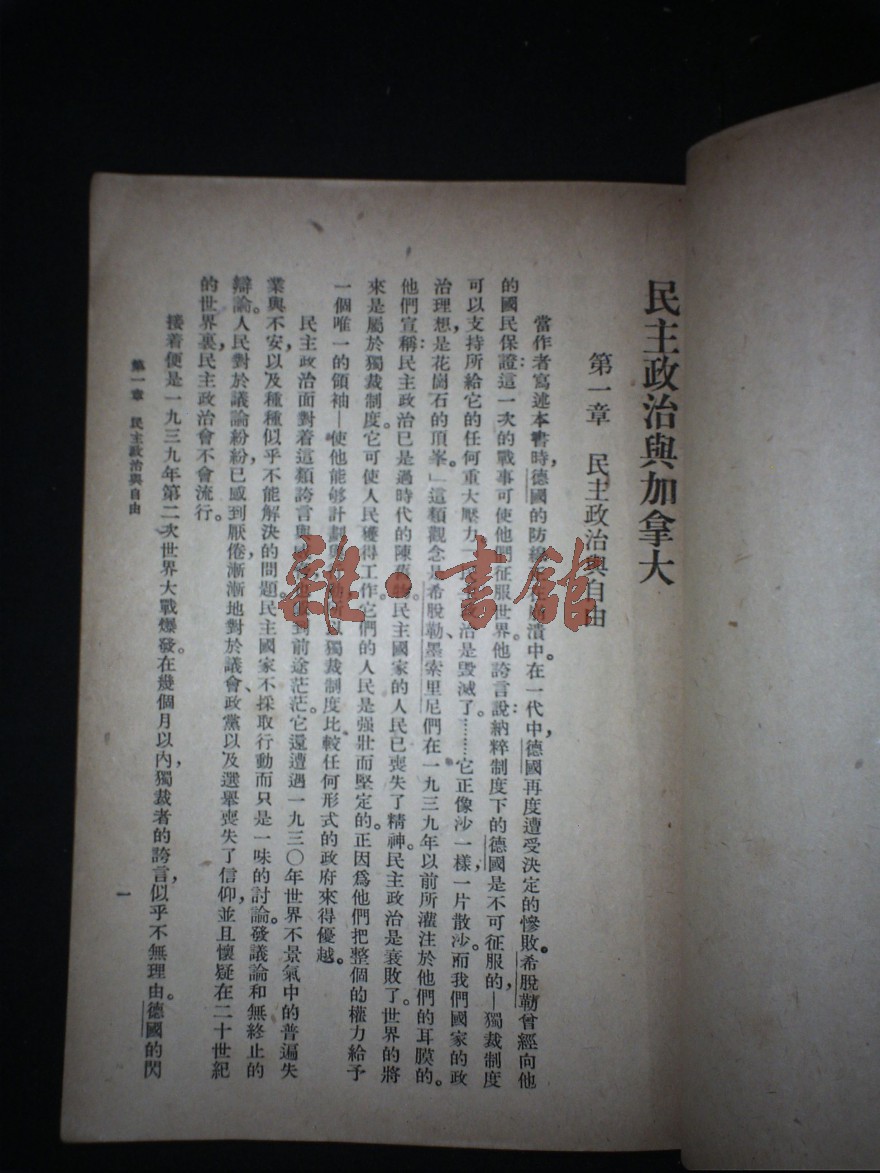 民主政治與加拿大
第一章 民主政治與自由
當作者寫述本書時，德國的防線正在崩潰中，在一代中德國再度遭受決定的慘敗。希脫勒曾經向他
的國民保證：這一次的戰事可使他們征服世界。他誇言說：納粹制度下的德國是不可征服的—獨裁制度
可以支持所給它的任何重大壓力。民主政治是毀滅了……它正像沙一樣，一片散沙。而我們國家的政
治理想，是花崗石的頂峯。」這類觀念是希脫勒、墨索里尼們在一九三九年以前所灌注於他們的耳膜的。
他們宣稱：民主政治已是過時代的陳舊物。民主國家的人民已喪失了精神。民主政治是衰敗了。世界的將
來是屬於獨裁制度。它可使人民獲得工作。它們的人民是强壯而堅定的。正因爲他們把整個的權力給予
一個唯一的領袖—使他能够計劃與行動，所以獨裁制度比較任何形式的政府來得優越。
民主政治面對着這類誇言與威脅，也感到前途茫茫。它還遭遇一九三〇年世界不景氣中的普遍失
業與不安，以及種種似乎不能解決的問題。民主國家不採取行動而只是一味的討論。發議論和無終止的
辯論。人民對於議論紛紛已感到厭倦，漸漸地對於議會、政黨以及選舉喪失了信仰，並且懷疑在二十世紀
的世界裏，民主政治會不會流行。
接着便是一九三九年第二次世界大戰爆發。在幾個月以內，獨裁者的誇言，似乎不無理由。德國的閃
第一章 民主政治與自由
一
雜·書館